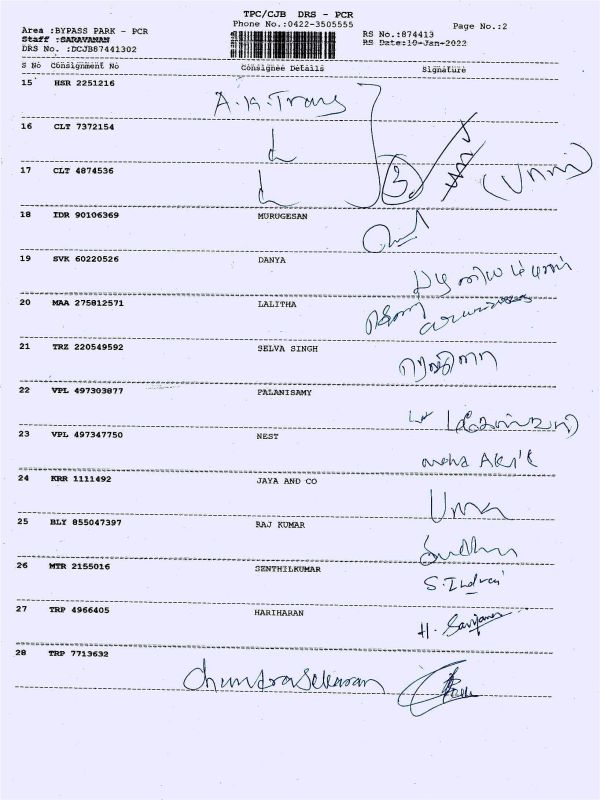 TPC/CJB DRS - PCR
Phone No.:0422-3505555
Page No.:2
Area :BYPASS PARK - PCR
RS No.:874413
Staff :SARAVANAN
RS Date:10-Jan-2022
DRS No. :DCJB87441302
S No Consignment No Consignee Details Signature
15 HSR 2251216 A.K.Trans
16 CLT 7372154
17 CLT 4874536 3 (Unni)
18 IDR 90106369 MURUGESAN
19 SVK 60220526 DANYA
20 MAA 275812571 LALITHA
21 TRZ 220549592 SELVA SINGH
22 VPL 497303877 PALANISAMY
23 VPL 497347750 NEST
24 KRR 1111492 JAYA AND CO Uma
25 BLY 855047397 RAJ KUMAR Sudha
26 MTR 2155016 SENTHILKUMAR
27 TRP 4966405 HARIHARAN
28 TRP 7713632 Chandrasekaran